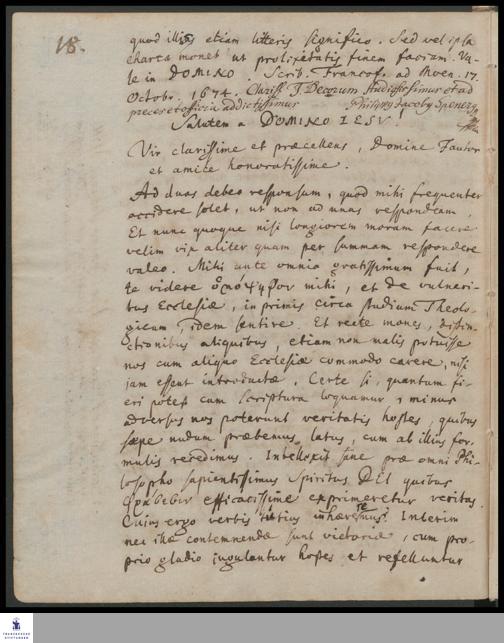 18.
quod illis etiam litteris significo. Sed vel ipsa
charta monet ut prolixitatis finem faciam. Va-
le in DOMINO. Scrib. Francof. ad Moen. 17.
Octobr. 1674. Cluiss. T. Decorum studiosissimus et ad
preces et officia addictissimus Philipp Jacob Spener
Salutem a DOMINO IESV!
Vir clarissime et præcellens, Domine Fautor
et amice honoratissime.
Ad duas debeo responsum, quod mihi frequenter
accidere solet, ut non ad unas respondeam.
Et nunc quoque nisi longiorem moram facere
velim vix aliter quam per summam respondere
valeo. Mihi ante omnia gratissimum fuit,
te videre ὁμόψηφον mihi, et de vulneri-
bus Ecclesiæ, in primis circa studium Theolo-
gicum, idem sentire. Et recte mones, distin-
ctionibus aliquibus, etiam non malis potuisse
nos cum aliquo Ecclesiæ commodo carere, nisi
jam essent introductæ. Certe si, quantum fi-
eri potest cum scriptura loquamur, minus
adversus nos poterunt veritatis hostes, quibus
sæpe nudum præbemus latus, cum ab illius for-
mulis recedimus. Intellexit sane præ omni Phi-
losopho sapientissimus Spiritus DEI quibus
efficacissime exprimeretur veritas.
Cuius ergo verbis tutius inhæremus. Interim
nec illæ contemnendæ sunt victoriæ, cum pro-
prio gladio jugulantur hostes et refelluntur
FRANCKESCHE STIFTUNGEN